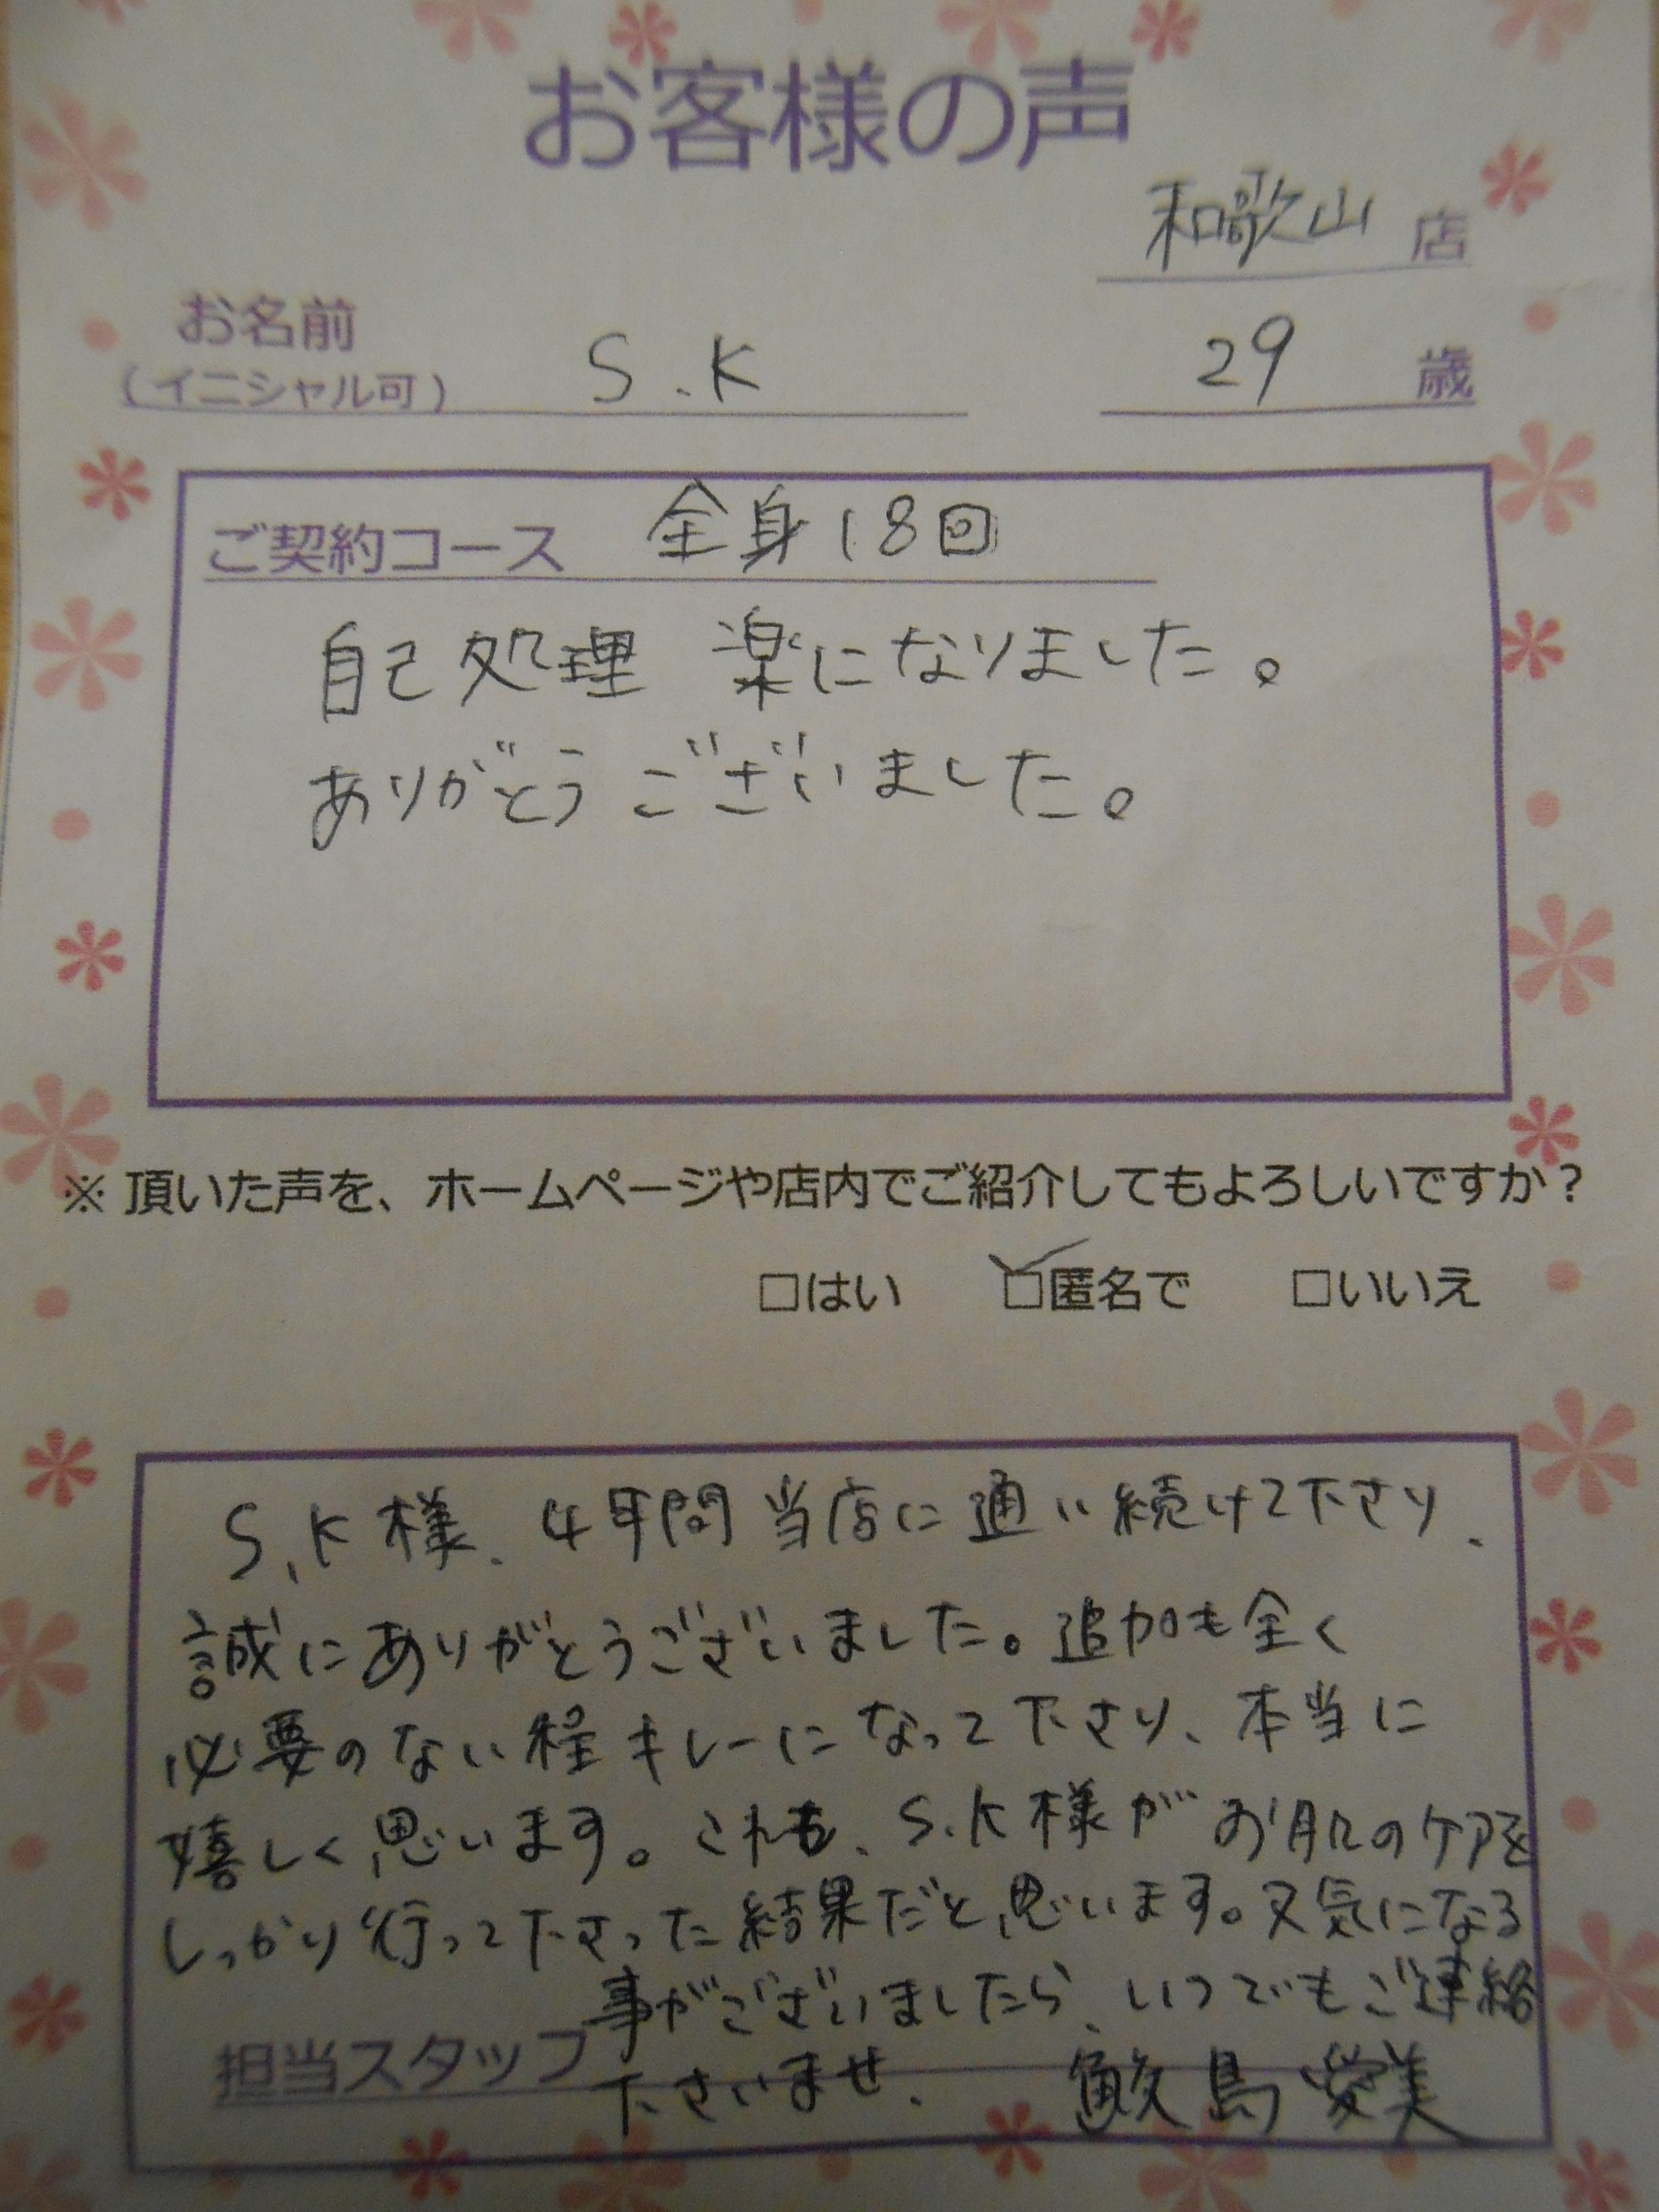 お客様の声
和歌山 店
お名前
(イニシャル可) S.K 29 歳
ご契約コース 全身18回
自己処理 楽になりました。
ありがとうございました。
※ 頂いた声を、ホームページや店内でご紹介してもよろしいですか？
□はい ☑匿名で □いいえ
S.K様、4年間当店に通い続けて下さり、
誠にありがとうございました。追加も全く
必要のない程キレーになって下さり、本当に
嬉しく思います。これも、S.K様がお肌のケアを
しっかり行って下さった結果だと思います。又気になる
事がございましたら、いつでもご連絡
担当スタッフ 下さいませ。 鮫島愛美